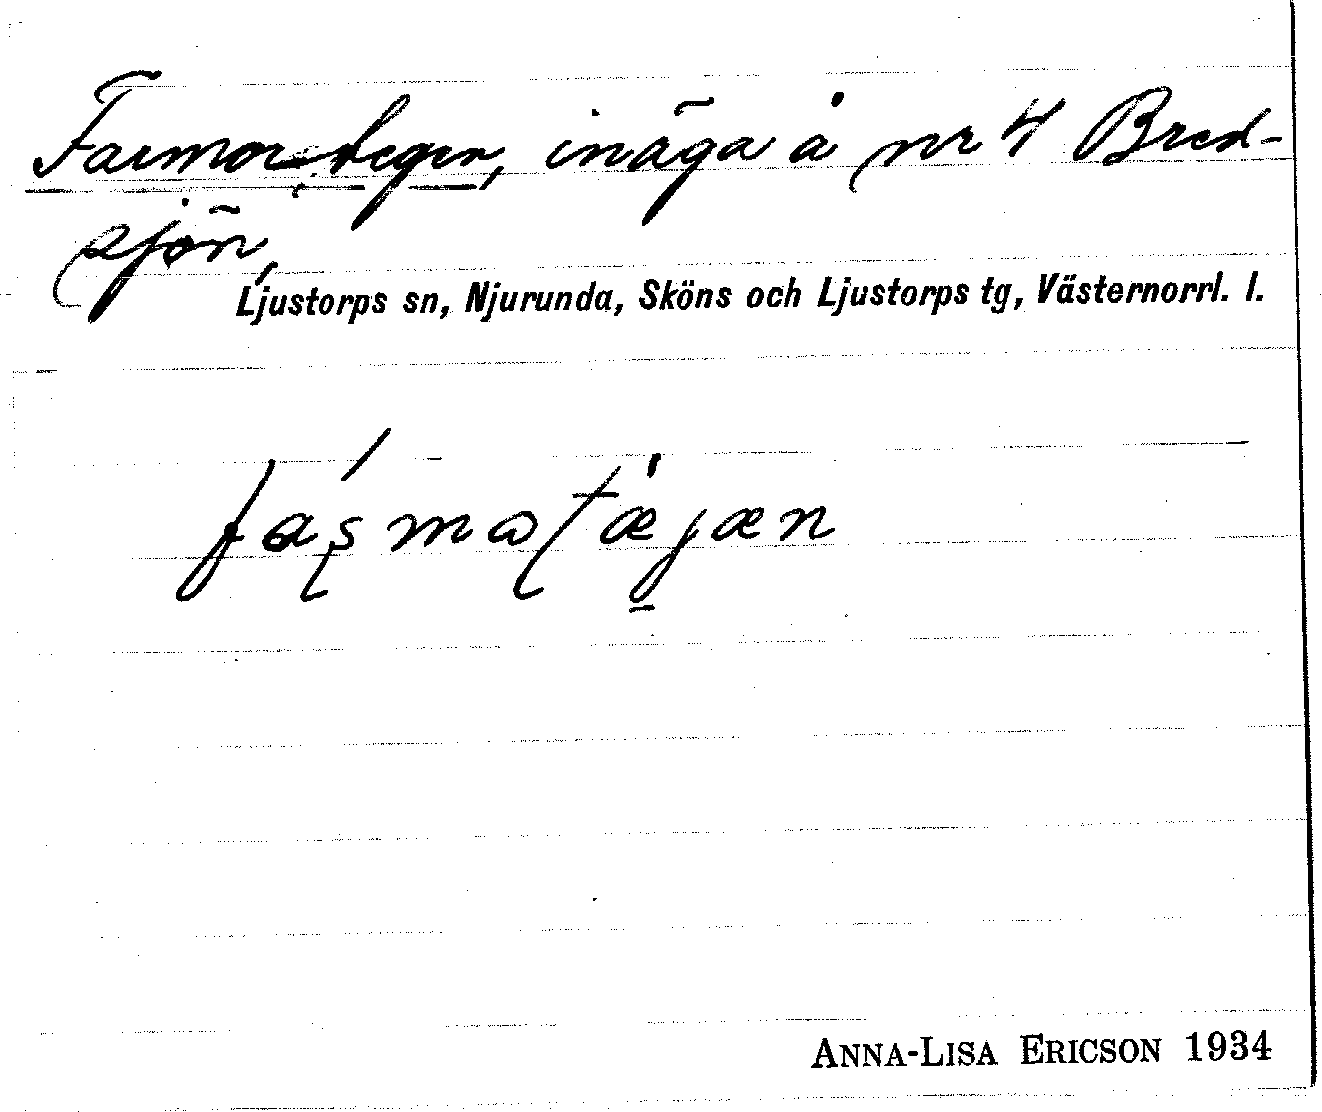 Farmorstegen, inäga å nr 4 Bred-
sjön,
Ljustorps sn, Njurunda, Sköns och Ljustorps tg, Västernorrl. l.
ANNA-LISA ERICSON 1934